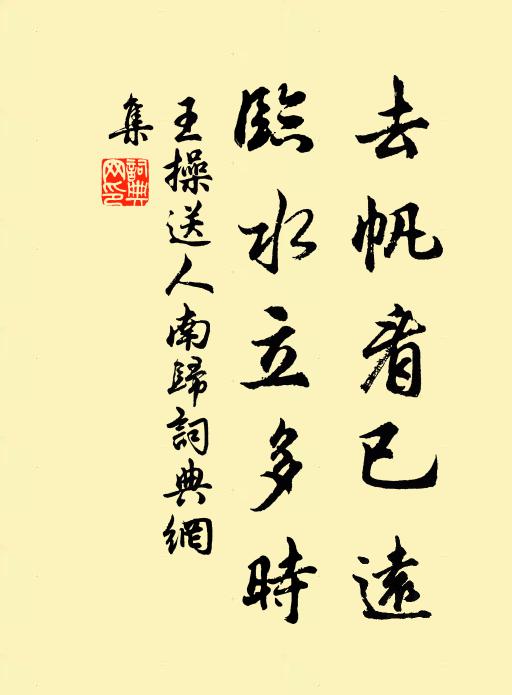 去帆看已遠
臨水立多時
王操送人南歸詞典網
集
詞典
网印